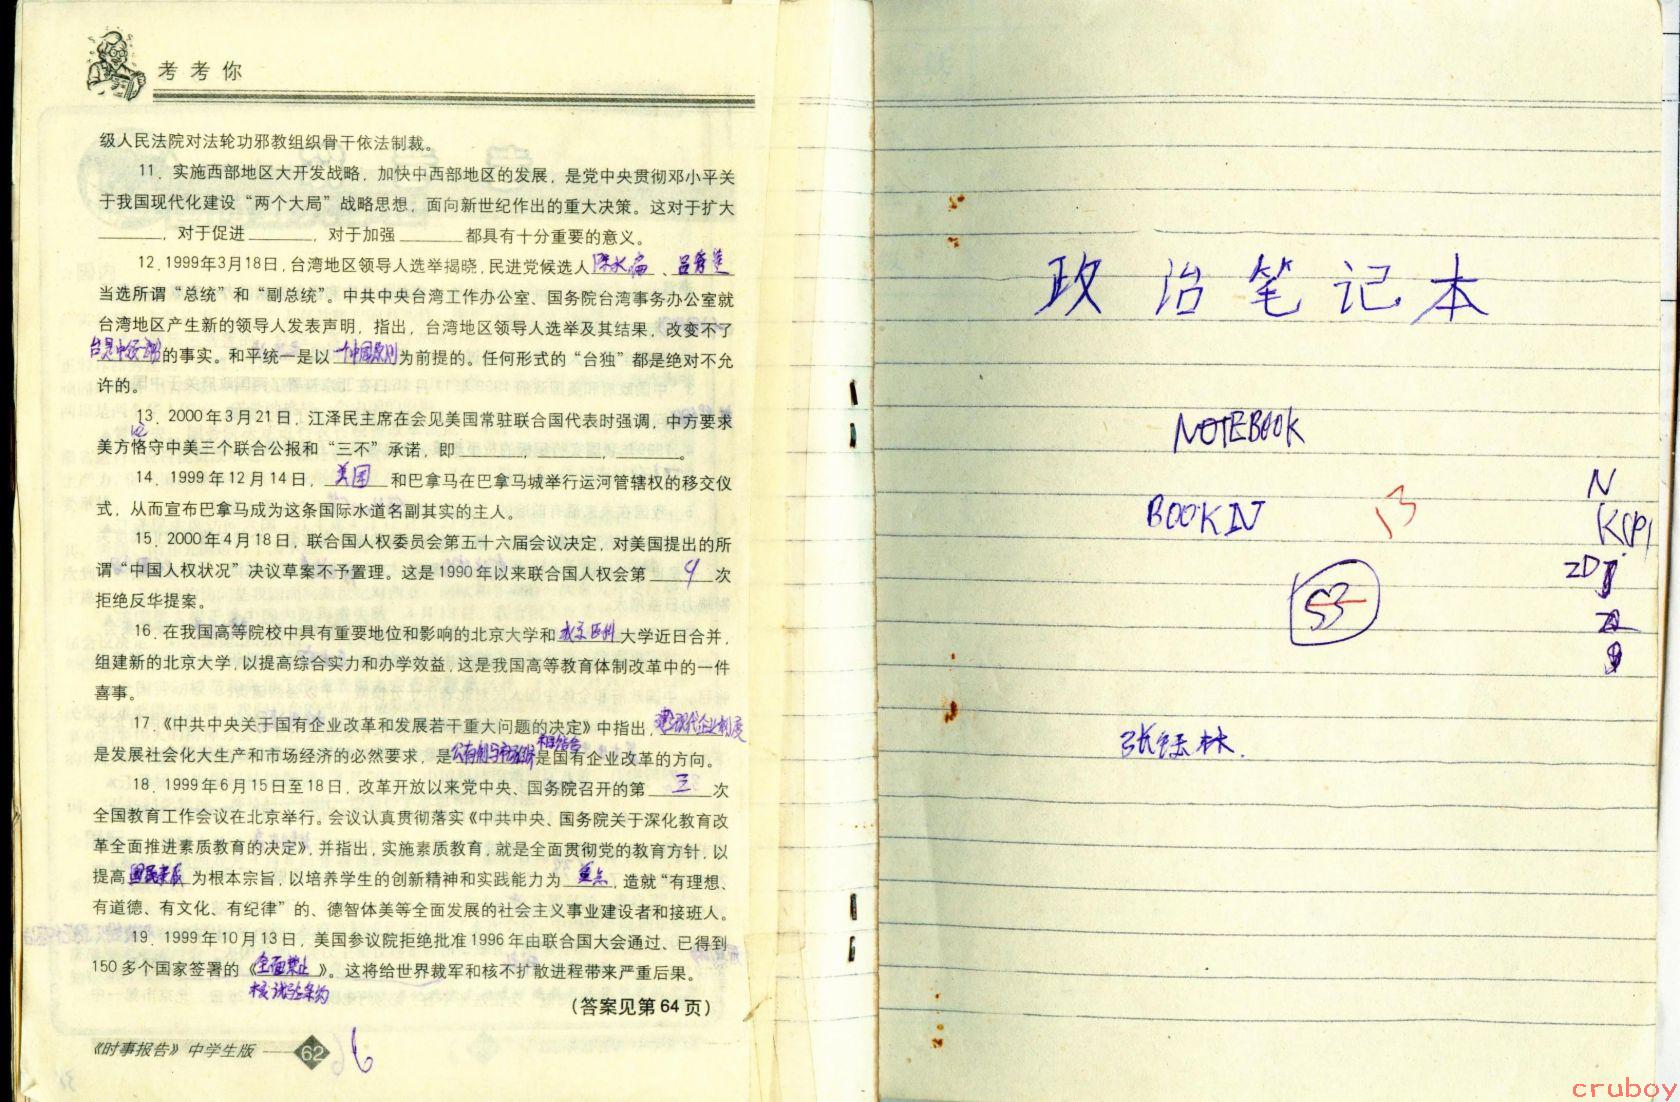 考考你
级人民法院对法轮功邪教组织骨干依法制裁。
11．实施西部地区大开发战略，加快中西部地区的发展，是党中央贯彻邓小平关
于我国现代化建设“两个大局”战略思想，面向新世纪作出的重大决策。这对于扩大
______，对于促进______，对于加强______都具有十分重要的意义。
12.1999年3月18日，台湾地区领导人选举揭晓，民进党候选人陈水扁、吕秀莲
当选所谓“总统”和“副总统”。中共中央台湾工作办公室、国务院台湾事务办公室就
台湾地区产生新的领导人发表声明，指出，台湾地区领导人选举及其结果，改变不了
的事实。和平统一是以一个中国原则为前提的。任何形式的“台独”都是绝对不允
许的。
13．2000年3月21日，江泽民主席在会见美国常驻联合国代表时强调，中方要求
美方恪守中美三个联合公报和“三不”承诺，即______，______，______。
14．1999年12月14日，美国和巴拿马在巴拿马城举行运河管辖权的移交仪
式，从而宣布巴拿马成为这条国际水道名副其实的主人。
15．2000年4月18日，联合国人权委员会第五十六届会议决定，对美国提出的所
谓“中国人权状况”决议草案不予置理。这是1990年以来联合国人权会第9次
拒绝反华提案。
16．在我国高等院校中具有重要地位和影响的北京大学和北京医科大学近日合并，
组建新的北京大学，以提高综合实力和办学效益，这是我国高等教育体制改革中的一件
喜事。
17．《中共中央关于国有企业改革和发展若干重大问题的决定》中指出，建立现代企业制度
是发展社会化大生产和市场经济的必然要求，是公有制与市场经济相结合是国有企业改革的方向。
18．1999年6月15日至18日，改革开放以来党中央、国务院召开的第三次
全国教育工作会议在北京举行。会议认真贯彻落实《中共中央、国务院关于深化教育改
革全面推进素质教育的决定》，并指出，实施素质教育，就是全面贯彻党的教育方针，以
提高国民素质为根本宗旨，以培养学生的创新精神和实践能力为重点，造就“有理想、
有道德、有文化、有纪律”的、德智体美等全面发展的社会主义事业建设者和接班人。
19．1999年10月13日，美国参议院拒绝批准1996年由联合国大会通过、已得到
150多个国家签署的《全面禁止
核试验条约》。这将给世界裁军和核不扩散进程带来严重后果。
（答案见第64页）
《时事报告》中学生版 62
政治笔记本
NOTEBOOK
BOOK IN
13
53
N
张
林.
cruboy